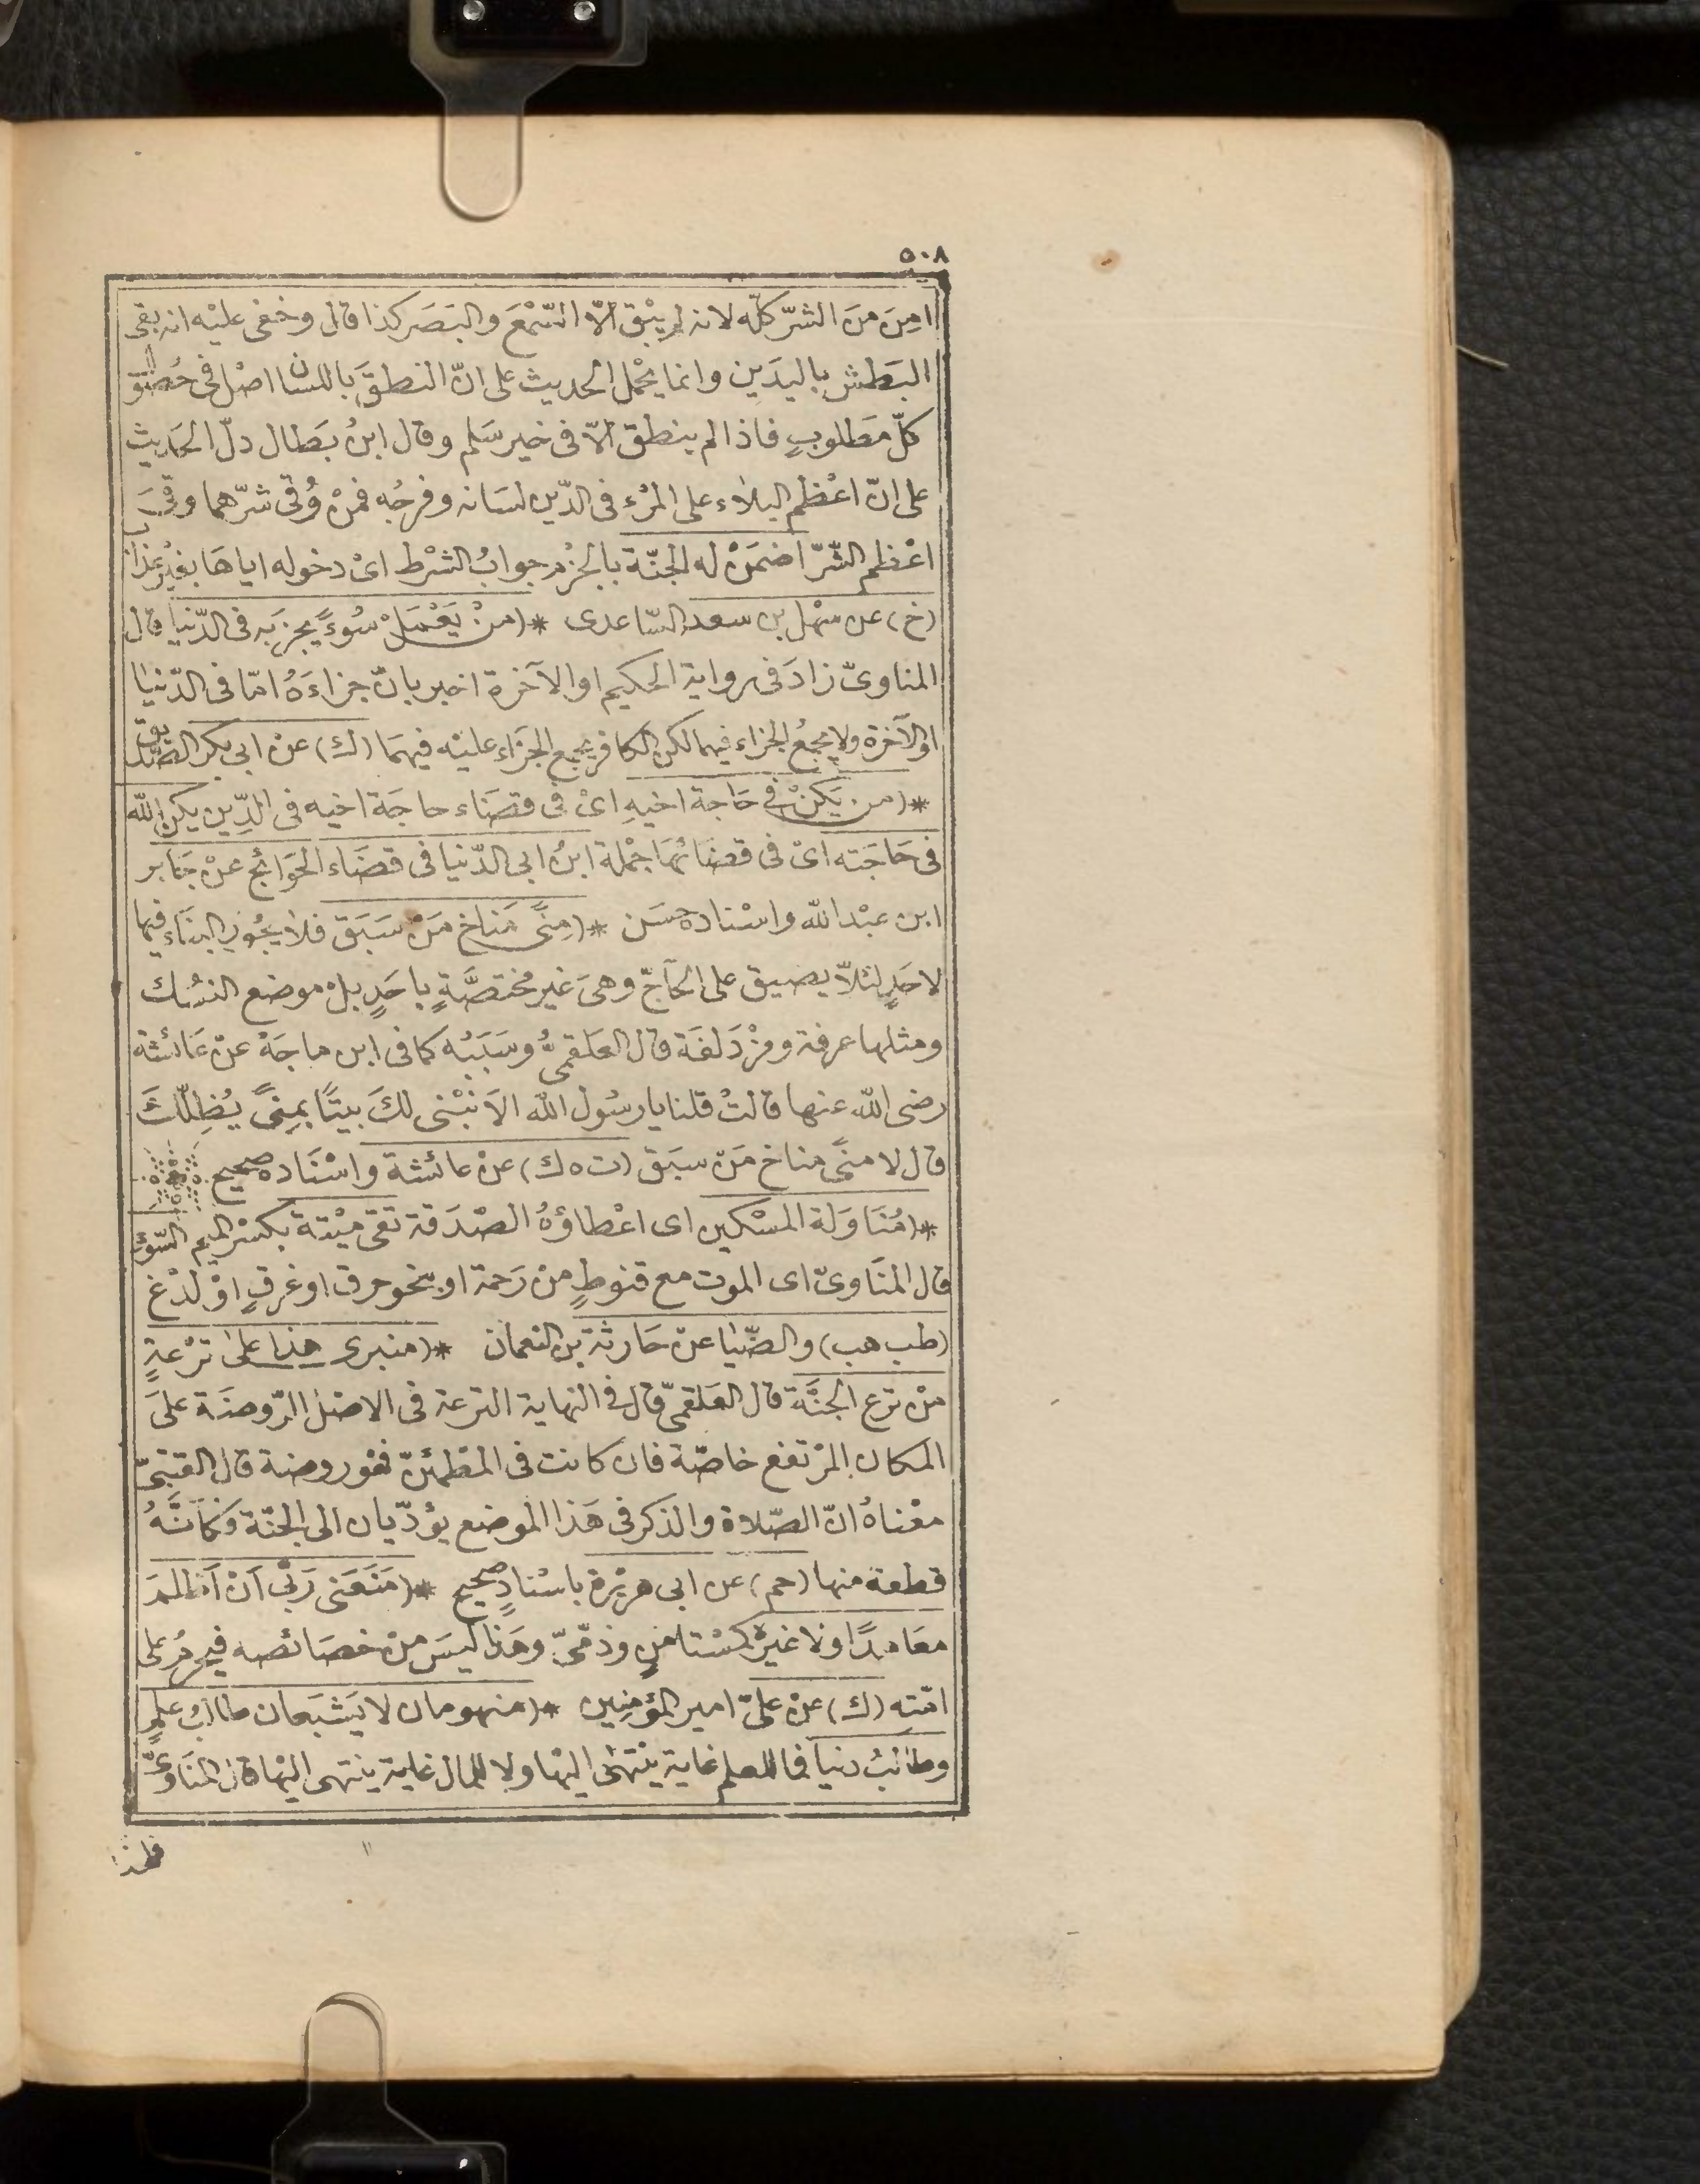 ٥٠٨
امِنَ منَ الشرّ كلّه لانه لم يبْق الّا السّمْعَ والبَصَر كذا قال وخفى عليْه انه بقى
البَطش باليدَين وانما يحْمل الحديث على انّ النطقَ باللسان اصْل فى حُصُول
كلّ مَطلوبٍ فاذا لم ينطق الّا فى خير سَلم وقال ابنُ بَطال دلّ الحَديث
على انّ اعْظم البلاء على المرْء فى الدّين لسَانه وفرجُه فمنْ وُقى شرّهما وقىَ
اعْظم الشّرّ اضمَنْ له الجنّة بالجزْم جوابُ الشرْط اىْ دخوله اياهَا بغيْر عذاب
(خ) عن سَهْل بن سعد السّاعدى * (منْ يَعْمَلْ سُوءًا يجزَ به فى الدّنيا قال
المناوىّ زادَ فى رواية الحكيم او الآخرة اخبر بانّ جزاءَهُ امّا فى الدّنيا
اوْ الآخرة ولا يجمعُ الجزاء فيهما لكن الكافر يجمع الجَزَاء عليْه فيهمَا (ك) عنْ ابى بكر الصّدّيق
* (من يَكنْ فى حَاجة اخيهِ اىْ فى قضَاء حاجَة اخيه فى الدِّين يكن الله
فى حَاجَته اىْ فى قضائهَا جمْلة ابنُ ابى الدّنيا فى قضَاء الحَوَائج عنْ جَابر
ابن عبْد الله واسْناده حسَن * (مِنًى مَناخ مَنْ سَبَق فلا يجُوز البنَاء فيها
لاحَدٍ لئلاّ يضيق على الحَاجّ وهىَ غير مُختصَّةٍ باحَدٍ بلْ موضع النسُك
ومثلها عرفة ومزْدَلفَة قال العَلقمىُّ وسَبَبُه كما فى ابن ماجَهْ عنْ عَائشة
رضى الله عنها قالتْ قلنا يا رسُول الله الاَ نبْنى لكَ بيتًا بمِنًى يُظِلّكَ
قال لا منًى مناخ مَنْ سبَق (ت ه ك) عنْ عائشة واسْنَاده صحيح
* (مُنَاوَلة المسْكين اى اعْطاؤهُ الصّدَقة تقى ميْتة بكسْر الميم السّوْءِ
قال المنَاوىّ اى الموت مع قنوطٍ منْ رَحمة او بنحو حرق او غرقٍ اوْ لدْغ
(طب هب) والضّيا عنْ حَارثة بن النعمان * (منبرى هذا على ترْعةٍ
منْ ترع الجنَّة قال العَلقمىّ قال فى النهاية الترعة فى الاصْل الرّوضَة علىَ
المَكان المرْتفع خاصّة فان كانت فى المطْمئنّ فهْو روضة قال القتبىّ
معْناهُ انّ الصّلاة والذكر فى هَذا الموضع يؤدّيان الى الجنّة وَكَأنَّهُ
قطعة منها (حم) عن ابى هريْرة باسْنادٍ صحيح * (مَنَعَنى رَبِّى اَنْ اَظلمَ
معَاهدًا ولا غيرهُ كمسْتامنٍ وذمّىّ وهَذا ليسَ منْ خصَائصه فيحرمُ على
امّتهِ (ك) عنْ علىّ امير المؤمِنِين * (منهومان لا يَشبَعان طالبُ علمٍ
وطالبُ دنيا فما للعلم غاية ينْتهى اليْها ولا للمال غاية ينتهى اليْها قال المنَاوىّ
فلهذا